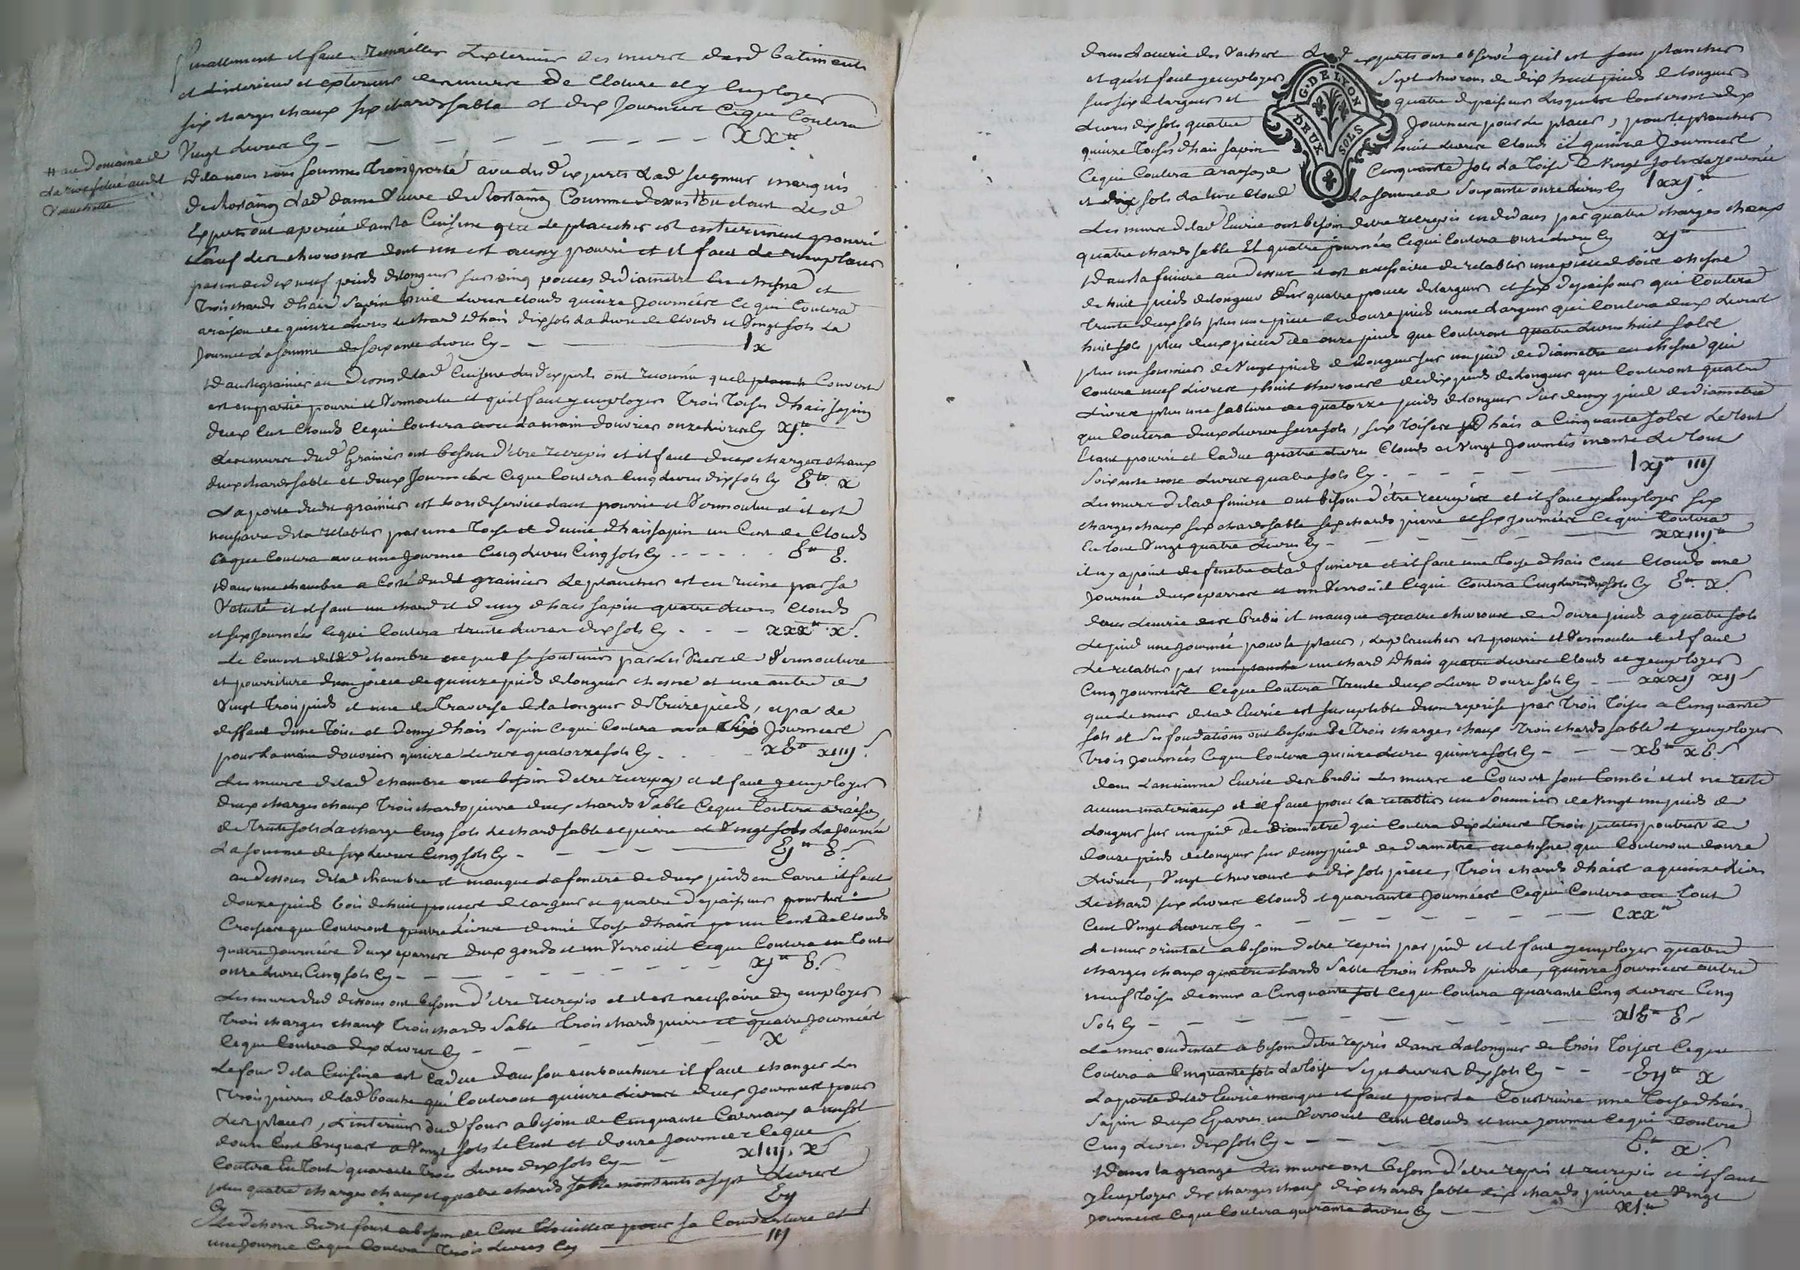 Finallement il faut remailler l'exterieur des murs desd batiments
et l'interieur et exterieur des murs de cloture et y employer
six charges chaux six chards sable et dix journées ce que coutera
vingt livres cy - - - - - - XX ₶
# au Domaine de
Vauchette
de la nous nous sommes transporté avec lesd experts led seigneur marquis
de Rostaing lad dame veuve de Rostaing comme dessus # ou etant lesd
experts ont aperçu dans la cuisine que le plancher est entierement pourri
sauf des chevrons dont un est aussy pourri et il faut le remplacer
par un de dix neuf pieds de longueur sur cinq pouces de diametre en chesne et
trois chards d'hais sapin huit livres clouds quinze journées ce qui coutera
a raison de quinze livres le chard d'hais dix sols la livre de clouds et vingt sols la
journée la somme de soixante livres cy - lx
dans le grainier au dessus de lad cuisine lesd experts ont reconnu que le couvert
est en partie pourri et vermoulu et qu'il faut y employer trois toises d'hais sapin
deux cent clouds ce qui coutera avec la main d'ouvrier onze livres cy xj ₶
les murs dud grainier ont besoin d'être recrepis et il faut deux charges chaux
deux chards sable et deux journées ce que coutera cinq livres dix sols cy v ₶ x
la porte dudt grainier est hors de service etant pourrie et vermoulue et il est
necessaire de la retablir par une toise et demie d'hais sapin un cent de clouds
ce que coutera avec une journée cinq livres cinq sols cy - - - v ₶ v.
dans une chambre a coté dudt grainier le plancher est en ruine par sa
vetusté et il faut un chard et demy d'hais sapin quatre livres clouds
et six journées ce qui coutera trente livres dix sols cy - - - xxx ₶ x s.
le couvert de lad chambre ne peut se soutenir par les
et pourriture d'une piece de quinze pieds de longueur chesne et une autre de
vingt trois pieds et une de traverse de la longueur de treize pieds, et par le
deffaut d'une toise et demy d'hais sapin ce qui coutera avec six journées
pour la main d'ouvrier quinze livres quatorze sols cy - xv ₶ xiiij s.
les murs de lad chambre ont besoin d'etre recrepis et il faut y employer
deux charges chaux trois chards pierre deux chards sable ce que coutera a raison
de trente sols la charge cinq sols le chard sable et pierre et vingt sols la journée
la somme de six livres cinq sols cy - - - - vj ₶ v s
au dessous de lad chambre il manque la fenetre de deux pieds en carré il faut
douze pieds bois de huit pouces de largeur et quatre d'epaisseur
que couteront quatre livres demie toise d'hais un cent de clouds
quatre journées deux eparres deux gonds et un verrouil ce que coutera en tout
onze livres cinq sols cy - - - - - - - xj ₶ v s.
les murs dud dessous ont besoin d'etre recrepis et il est necessaire d'y employer
trois charges chaux trois chards sable trois chards pierre et quatre journées
ce que coutera dix livres cy - - - - - x
le four de la cuisine est cadue dans son embouchure il faut changer les
trois pierres de lad bouche qui couteront quinze livres deux journées pour
les placer, l'interieur dud four a besoin de cinquante carreaux
deux cent briques a vingt sols le cent et douze journées ce que
coutera en tout quarante trois livres dix sols cy - xliij. x s
plus quatre charges chaux et quatre chards sable montants a sept livres
cy vij
le dehors dudt four a besoin de cent thuilles pour sa couverture et
une journée ce que coutera trois livres cy - iij
dans l'ecurie des vaches lesd experts ont observé quil est sans plancher
et quil faut y employer sept chevrons de dix huit pieds de longueur
sur six de largeur et quatre d'epaisseur lesquels couteront dix
livres dix sols quatre journées pour les placer, pour le plancher
quinze toises d'hais sapin huit livres clouds et quinze journées
ce qui coutera a raison de cinquante sols la toise et vingt sols la journée
et dix sols la livre clouds la somme de soixante onze livres cy lxxj ₶
G.DE LYON
DEUX SOLS
les murs de lad ecurie ont besoin d'etre recrepis en dedans par quatre charges chaux
quatre chards sable et quatre journées ce qui coutera onze livres cy xj ₶
dans la feniere au dessus il est necessaire de retablir une piece de bois chesne
de huit pieds de longueur sur quatre pouces de largeur et six d'epaisseur qui coutera
trente deux sols plus une piece de douze pieds meme largeur qui coutera deux livres
huit sols plus deux pieces de onze pieds que couteront quatre livres huit sols
plus un sommier de vingt pieds de longueur sur un pied de diametre en chesne qui
coutera neuf livres, huit chevrons de dix pieds de longueur que couteront quatre
livres plus une sabliere de quatorze pieds de longueur sur demy pied de diametre
que coutera deux livres seize sols, six toises d'hais a cinquante sols le tout
etant pourri et cadue quatre livres clouds et vingt journées monté le tout
soixante une livres quatre sols cy - - - - lxj ₶ iiij
les murs de lad feniere ont besoin d'être recrepis et il faut y employer six
charges chaux six chards sable six chards pierre et six journées ce que coutera
en tout vingt quatre livres cy - - - - xxiiij ₶
il n'y a point de fenetre a lad feniere et il faut une toise d'hais cent clouds une
journée deux eparres et un verrouil ce qui coutera cinq livres dix sols cy v ₶ x s.
dans l'ecurie des brebis il manque quatre chevrons de douze pieds a quatre sols
le pied une journée pour les placer, le plancher est pourri et vermoulu et il faut
le retablir par un chard d'hais quatre livres clouds et y employer
cinq journées ce que coutera trente deux livres douze sols cy - - xxxij xij s
que le mur de lad ecurie est susceptible d'une reprise par trois toises a cinquante
sols et ses fondations ont besoin de trois charges chaux trois chards sable et y employer
trois journées ce que coutera quinze livres quinze sols cy - - - xv ₶ xv s.
dans l'ancienne ecurie des brebis les murs et couvert sont tombé et il ne reste
aucun materiaux et il faut pour la retablir un sommier de vingt un pieds de
longueur sur un pied de diametre qui coutera dix livres trois petites poutres de
douze pieds de longueur sur demy pied de diametre en chesne que couteront douze
livres, vingt chevrons a dix sols piece, trois chards d'hais a quinze livres
le chard six livres clouds et quarante journées ce qui coutera en tout
cent vingt livres cy - - - - - - - - cxx ₶
le mur oriental a besoin d'etre repris par pied et il faut y employer quatre
charges chaux quatre chards sable trois chards pierre, quinze journées outre
neuf toises de mur a cinquante sols ce que coutera quarante cinq livres cinq
sols cy - - - - - - - - xlv ₶ v s
le mur occidental a besoin d'etre repris dans la longueur de trois toises ce que
coutera a cinquante sols la toise sept livres dix sols cy - - - vij ₶ x
la porte de lad ecurie manque et faut pour la construire une toise d'hais
sapin deux eparres un verrouil cent clouds et une journée ce qui coutera
cinq livres dix sols cy - - - - - - v ₶ x s.
dans la grange les murs ont besoin d'etre repris et recrepis et il faut
y employer dix charges chaux dix chards sable dix chards pierre et vingt
journées ce que coutera quarante livres cy - - - - xl ₶